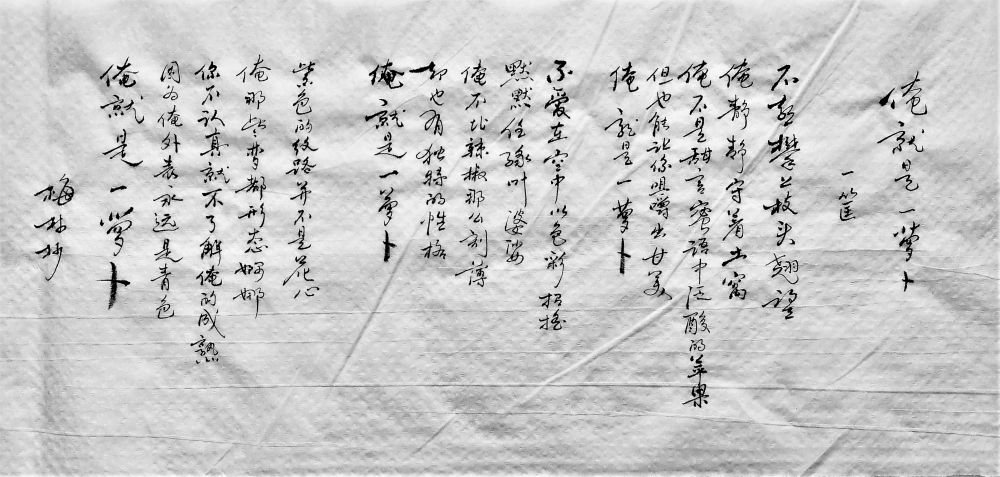 俺就是一萝卜
一筐
不想攀上枝头翘望
俺静静守着土窝
俺不是甜言蜜语中泛酸的苹果
但也能让你咀嚼出甘美
俺就是一萝卜
不爱在空中以色彩招摇
默默任绿叶婆娑
俺不比辣椒那么刻薄
却也有独特的性格
俺就是一萝卜
紫色的纹路并不是花心
俺那些梦都形态婀娜
你不认真就不了解俺的成熟
因为俺外表永远是青色
俺就是一萝卜
梅林抄